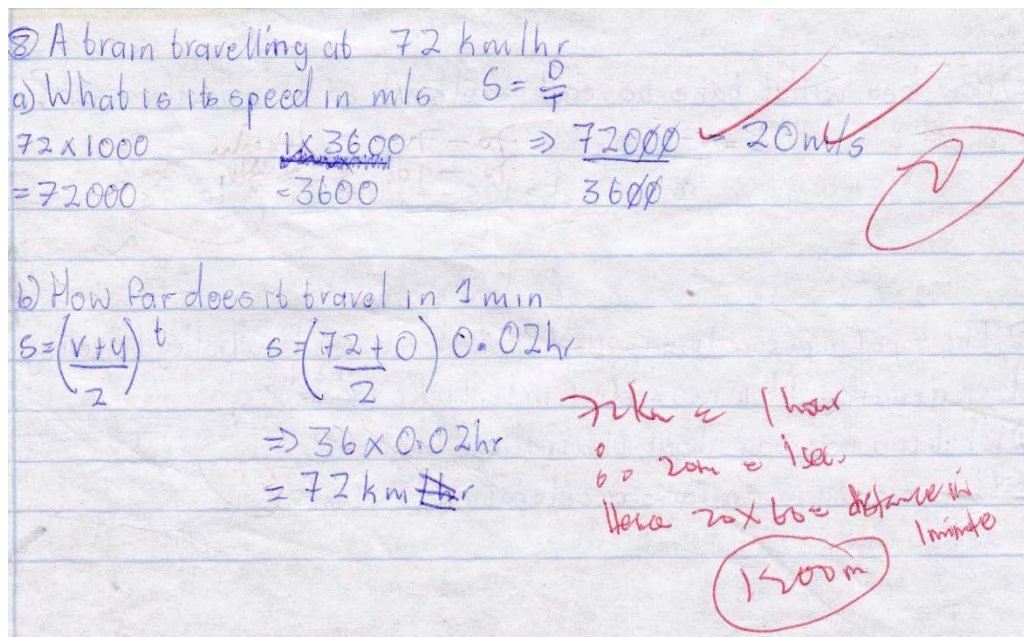 ⑧ A train travelling at 72 km/hr
a) What is its speed in m/s S = D/T
72 x 1000 1 x 3600 ⇒ 72000 = 20m/s
= 72000 = 3600 3600
2
b) How far does it travel in 1 min
s = (v+u/2) t s = (72+0/2) 0.02hr
⇒ 36 x 0.02hr
= 72 km
72km = 1 hour
so 20m = 1sec.
Hence 20 x 60 = distance in
1 minute
1200m